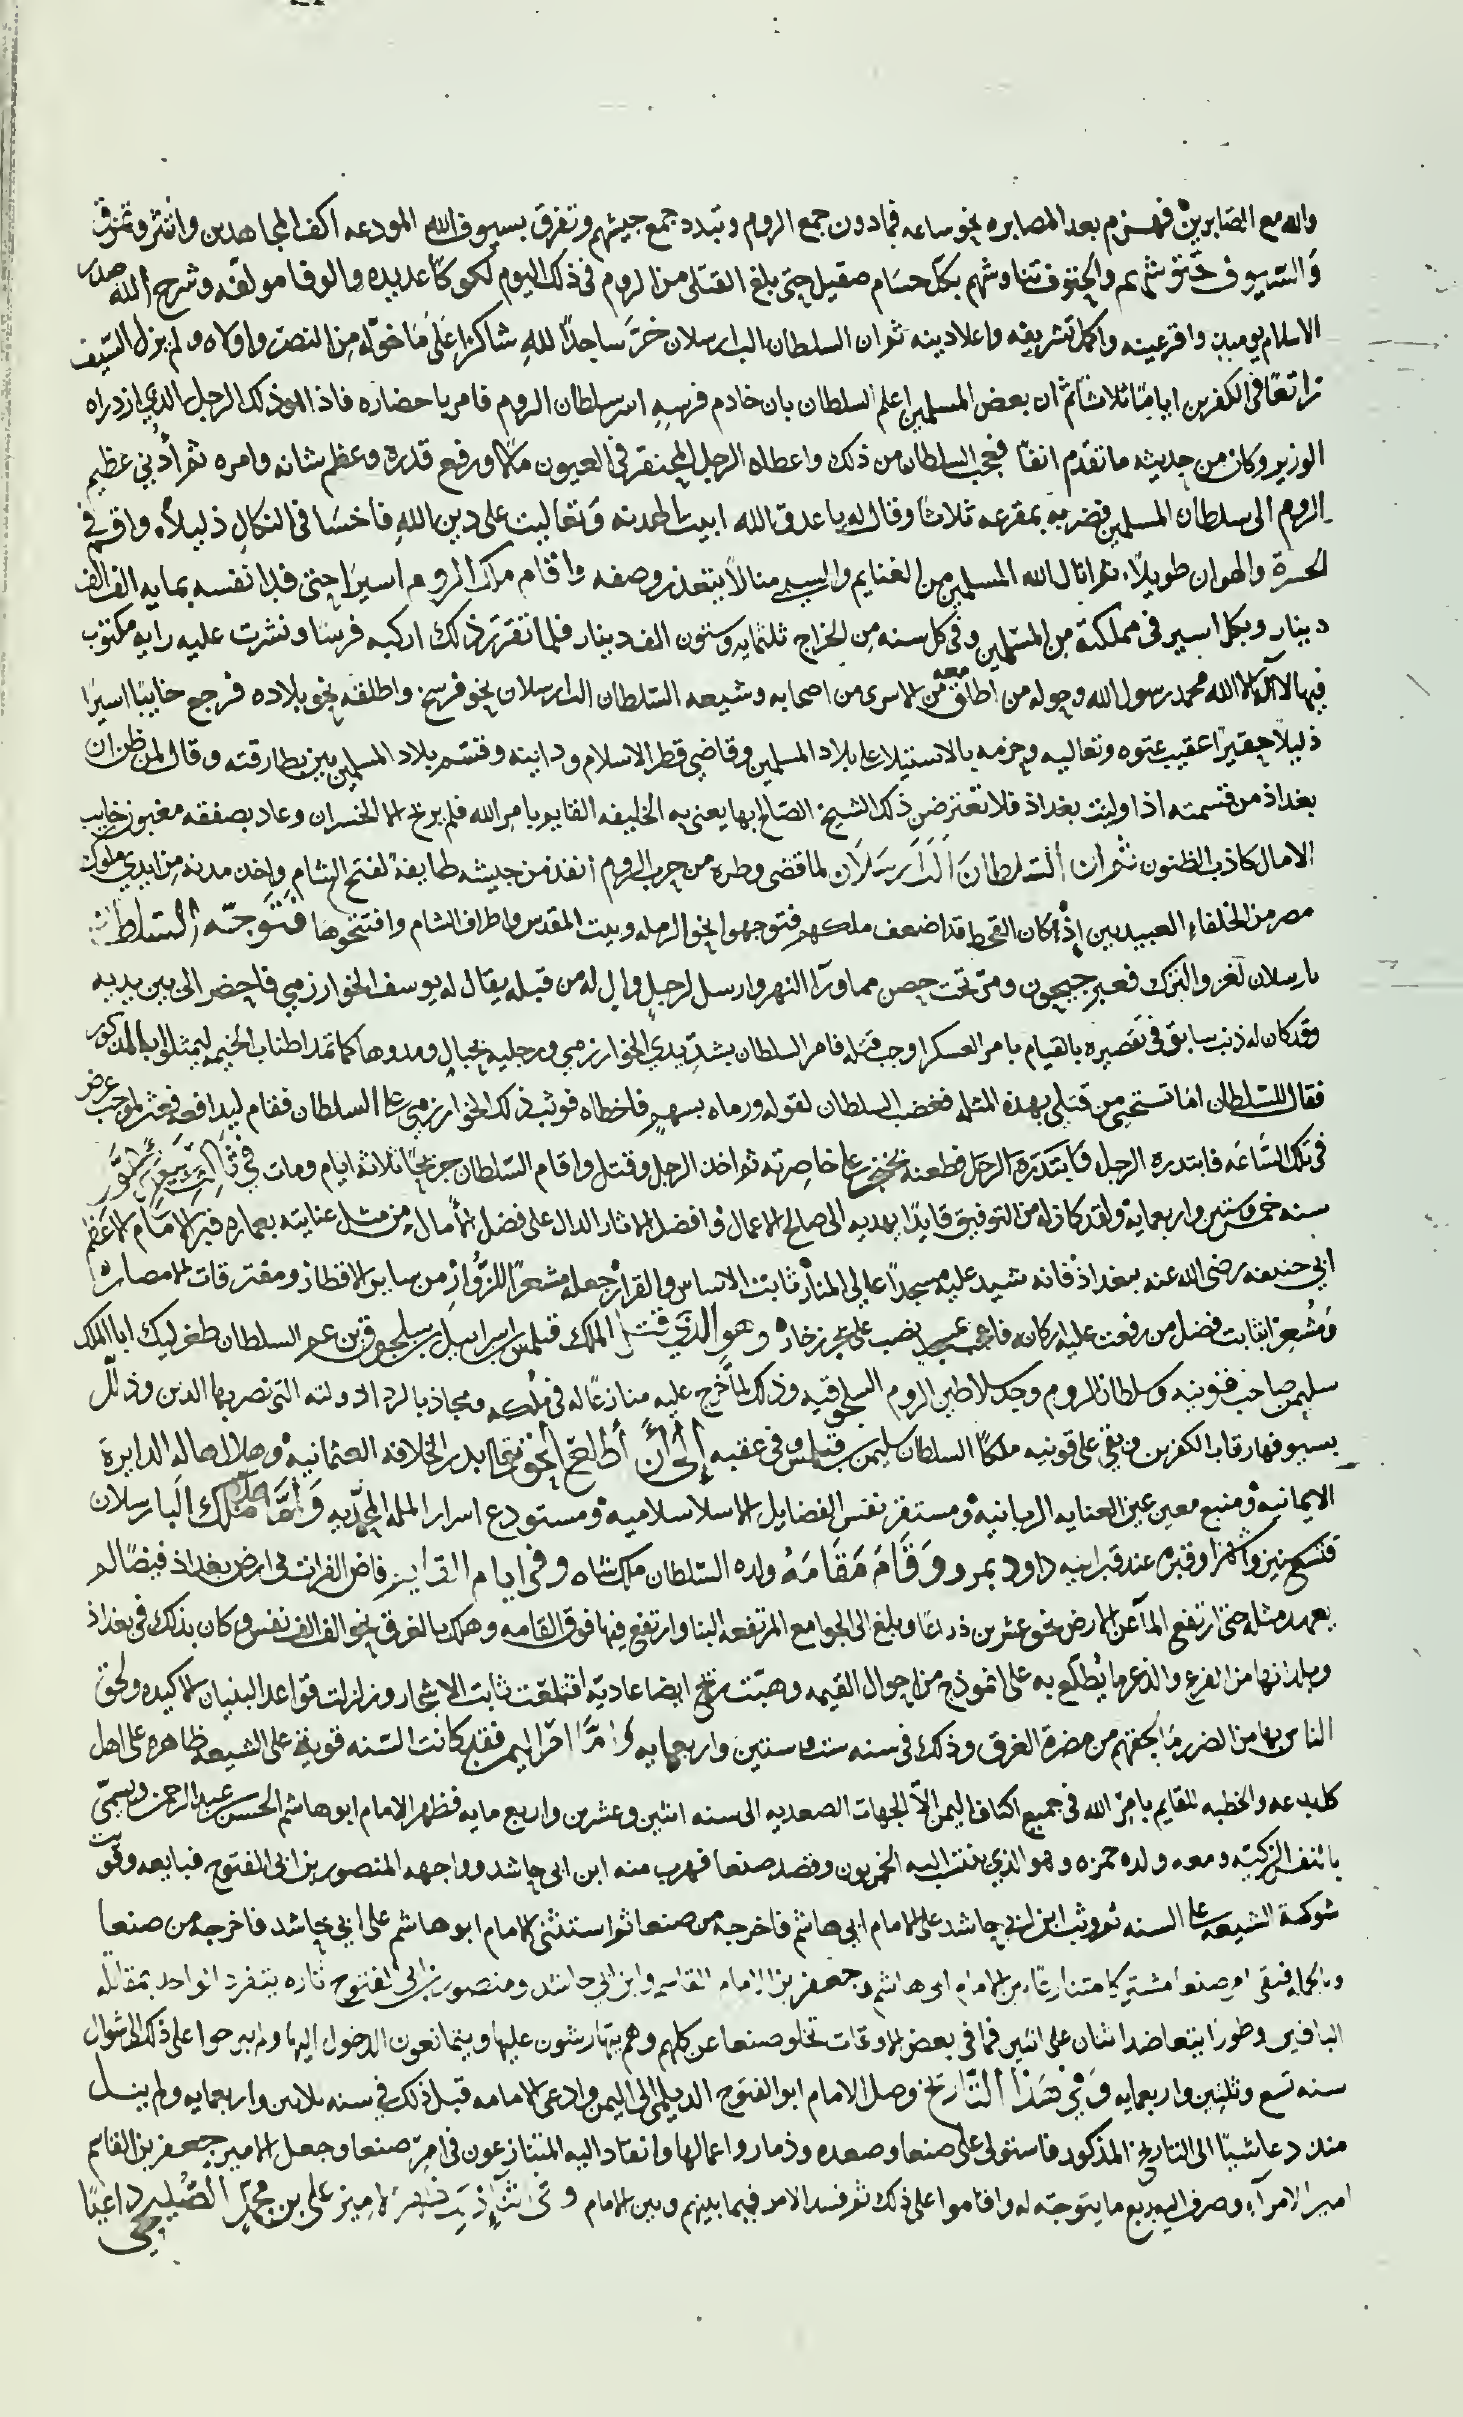 والله مع الصابرين فهزم بعد المصابره نحو ساعه فمادون جمع الروم وتبدد جمع جيشهم وتفرق بسيوف الله المودعه اكف المجاهدين وانتثر وتمزق
والسيوف والحتوف تناوشهم بكل حسام صقيل حتى بلغ القتلى من الروم فى ذلك اليوم لكوكا عديده والوفا مولفه وشرح الله صدر
الاسلام يوميذ واقر عينه واكمل تشريفه واعلا دينه ثم ان السلطان الب ارسلان خر ساجدا لله شاكرا على ما خوله من النصر واولاه ولم يزل السيف
راتعا فى الكفرين اياما ثلاثا ثم ان بعض المسلمين اعلم السلطان بان خادم فرسه اسر سلطان الروم فامر باحضاره فاذا هو ذلك الرجل الذي ازدراه
الوزير وكان من حديثه ما تقدم انفا فعجب السلطان من ذلك واعطاه الرجل المحتقر فى العيون مالا ورفع قدره وعظم شانه وامره ثم أدني عظيم
الروم الى سلطان المسلمين فضربه بمقرعه ثلاثا وقال له يا عدو الله ابيت الهدنه وتعاليت على دين الله فاخسا فى النكال ذليلا واقم فى
الحسرة والهوان طويلا ثم انال الله المسلمين من الغنايم والسبي منالا يتعذر وصفه واقام ملك الروم اسيرا حتى فدا نفسه بمايه الف الف
دينار وبكل اسير فى مملكته من المسلمين وفى كل سنه من الخراج ثلثمايه وستون الف دينار فلما تقرر ذلك اركبه فرسا ونشرت عليه رايه مكتوب
فيها لا اله الا الله محمد رسول الله وحوله من اطلق معه من الاسرى من اصحابه وشيعه السلطان الب ارسلان نحو فرسخ واطلقه نحو بلاده فرجع خايبا اسيرا
ذليلا حقيرا عقيب عتوه وتعاليه وجزمه بالاستيلا على بلاد المسلمين وقاضي قطر الاسلام ودانيه وقسم بلاد المسلمين بين بطارقته وقال لمن ظن ان
بغداد من قسمته اذا وليت بغداد فلا تعترض ذلك الشيخ الصالح بها يعني به الخليفه القايم بامر الله فلم يربح الا الخسران وعاد بصفقه مغبون خايب
الامال كاذب الظنون ثم ان السلطان الب ارسلان لما قضى وطره من حرب الروم انفذ من جيشه طايفة لفتح الشام واخذ مدنه من ايدي ملوك
مصر من الخلفاء العبيديين إذ كان القحط قد اضعف ملكهم فتوجهوا نحو الرمله وبيت المقدس واطراف الشام وافتتحوها فتوجه السلطان
بارسلان لغز والترك فعبر جيحون ومر تحت حصن مما ورآ النهر وارسل لرجل وال له من قبله يقال له يوسف الخوارزمي فاحضر الى بين يديه
وقد كان له ذنب سابق فى تقصيره بالقيام بامر العسكر اوجب قتله فامر السلطان بشد يدي الخوارزمي ورجليه بحبال ومدوها كما تمد اطناب الخيم ليمثلوا بالمذكور
فقال للسلطان اما تستحيي من قتلي بهذه المثله فغضب السلطان لقوله ورماه بسهم فاخطاه فوثب ذلك الخوارزمي على السلطان فقام ليدافعه فعثر لموجب عرض
فى تلك الساعه فابتدره الرجل فابتدره الرجل فطعنه بخنجر على خاصرته ثم اخذ الرجل وقتل واقام السلطان جريحا ثلاثة ايام ومات في
سنه خمس وستين واربعمايه ولقد كان له من التوفيق قايدا يهديه الى صالح الاعمال وافضل الاثار الدال على فضل الامال من مثل عنايته بعماره قبر الامام الاعظم
ابي حنيفه رضي الله عنه ببغداد فانه شيد عليه مسجدا عالي المنار ثابت الاساس والقرار جعله مشعرا للزوار من ساير الاقطار ومفترقات الامصار
ومشعرا بثابت فضل من رفعت عليه اركانه وهو الذي قتل الملك قتلمش بن اسرائيل بن سلجوق بن عم السلطان طغرلبك ابا الملك
سليمن صاحب قونيه وسلطان الروم وجد سلاطين الروم السلجوقيه وذلك لما خرج عليه منازعا له فى ملكه ومجاذبا لردا دولته التى نصر بها الدين وذلل
بسيوفها رقاب الكفرين وبقي على قونيه ملكا السلطان سليمن بن قتلمش وفى عقبه إلى أن أطلع الحق تعالى بدر الخلافه العثمانيه وهلال هاله الدايرة
الايمانيه ومنبع معين عين العنايه الربانيه ومستقر نفس الفضايل الاسلاميه ومستودع اسرار المله المحمديه وأما ملك الب ارسلان
فتسع سنين واشهرا وقبره عند قبر ابيه داود بمرو وقام مقامه ولده السلطان ملك شاه وفى ايام القايم فاض الفرات فى ارض بغداد فيضا لم
يعهد مثله حتى ارتفع المآ عن الارض نحو عشرين ذراعا وبلغ الى الجوامع المرتفعه البنا وارتفع فيها فوق القامه وهلك بالغرق نحو الف الف نفس وكان بذلك فى بغداذ
وبلدانها من الفزع والذعر ما يطلع به على انموذج من احوال القيمه وهبت ريح ايضا عاديه اقتلعت ثابت الاشجار وزلزلت قواعد البنيان الاكيده ولحق
الناس بها من الضرر ما الحقهم من مضرة الغرق وذلك فى سنه ست وستين واربعمايه وامر اليمن فقد كانت السنه قوية على الشيعه ظاهره على اهل
كل بدعه والخطبه للقايم بامر الله فى جميع اكناف اليمن الا الجهات الصعديه الى سنه اثنين وعشرين واربع مايه فظهر الامام ابو هاشم الحسن بن عبد الرحمن وتسمى
بالنفس الزكيه ومعه ولده حمزه وهو الذي ينتسب اليه الحمزيون وقصد صنعا فهرب منه ابن ابى حاشد وواجهه المنصور بن ابى الفتوح فبايعه وقويت
شوكة الشيعه على السنه ثم وثب ابن ابي حاشد على الامام ابى هاشم فاخرجه من صنعا ثم استثنى الامام ابو هاشم على ابي حاشد فاخرجه من صنعا
وبالجمله فبقى امر صنعا مشتركا متنازعا بين الامام ابى هاشم وجعفر بن الامام القاسم وابن ابى حاشد ومنصور بن ابى الفتوح تاره يتفرد الواحد بمقاتله
الباقين وطورا يتعاضد اثنان على اثنين فما فى بعض الاوقات تخلو صنعا عن كلهم وهم يتهارشون عليها ويتمانعون الدخول اليها ولم يبرحوا على ذلك الى شوال
سنه تسع وثلثين واربعمايه وفي هذا التاريخ وصل الامام ابو الفتوح الديلمى الى اليمن وادعى الامامه قبل ذلك فى سنه ثلاثين واربعمايه ولم ينل
منذ دعا شيئا الى التاريخ المذكور فاستولى على صنعا وصعده وذمار واعمالها وانقاد اليه المتنازعون فى امر صنعا وجعل الامير جعفر بن القاسم
امير الامرآء وصرف اليه ربع ما يتوجه له واقاموا على ذلك ثم فسد الامر فيما بينهم وبين الامام وفى الامير على بن محمد الصليحي داعيا